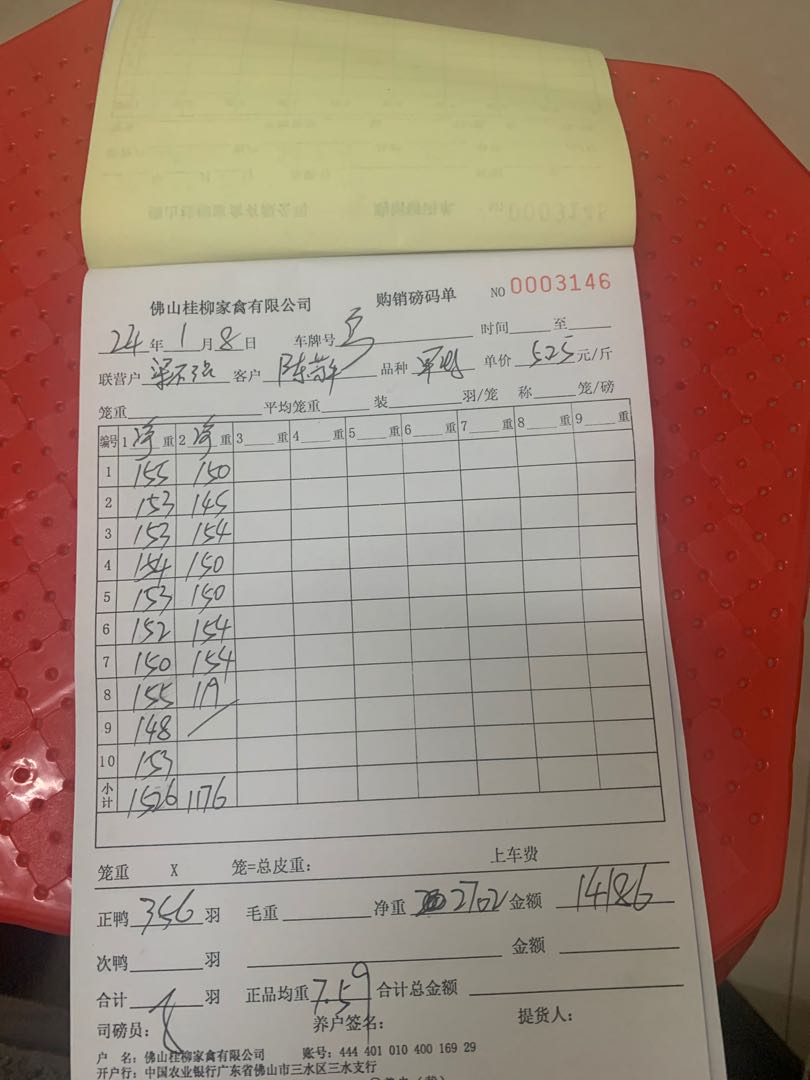 佛山桂柳家禽有限公司 购销磅码单 NO 0003146
24年1月8日 车牌号 时间 至
联营户 客户 陈 品种 单价 5.25元/斤
笼重 平均笼重 装 羽/笼 称 笼/磅
编号 1 净 重 2 净 重 3 重 4 重 5 重 6 重 7 重 8 重 9 重
1 155 150
2 153 145
3 153 154
4 154 150
5 153 150
6 152 154
7 150 154
8 155 119
9 148
10 153
小计 1526 1176
笼重 X 笼=总皮重: 上车费
正鸭 356 羽 毛重 净重 2702 金额 14186
次鸭 羽 金额
合计 羽 正品均重 7.59 合计总金额
司磅员: 养户签名: 提货人:
户 名: 佛山桂柳家禽有限公司 账号: 444 401 010 400 169 29
开户行: 中国农业银行广东省佛山市三水区三水支行